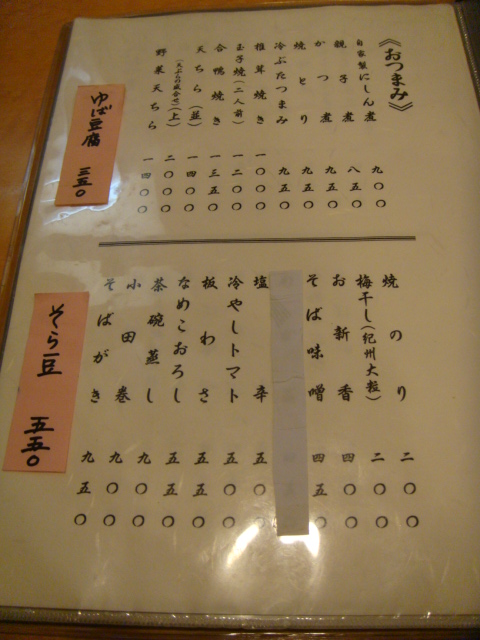 《おつまみ》
自家製にしん煮 九〇〇
親子煮 八五〇
かつ煮 九五〇
焼とり 九五〇
冷ぶたつまみ 九五〇
椎茸焼き 一〇〇〇
玉子焼(二人前) 一二〇〇
合鴨焼き 一三五〇
天ちら(並) 一四〇〇
(天ぷらの盛合せ)(上) 二〇〇〇
野菜天ちら 一四〇〇
ゆば豆腐 三五〇
焼のり 二〇〇
梅干し(紀州大粒) 二〇〇
お新香 四〇〇
そば味噌 四五〇
塩辛 五〇〇
冷やしトマト 五〇〇
板わさ 五五〇
なめこおろし 五五〇
茶碗蒸し 九〇〇
小田巻 九〇〇
そばがき 九五〇
そら豆 五五〇